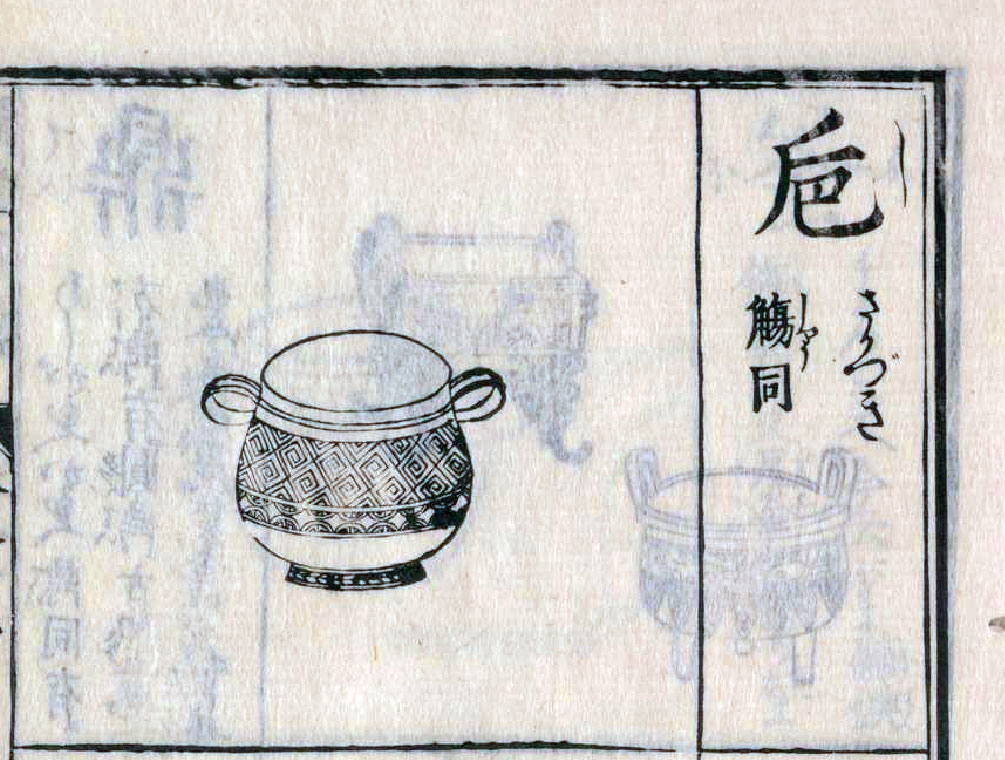 巵
し
さかづき
觴同
しやう